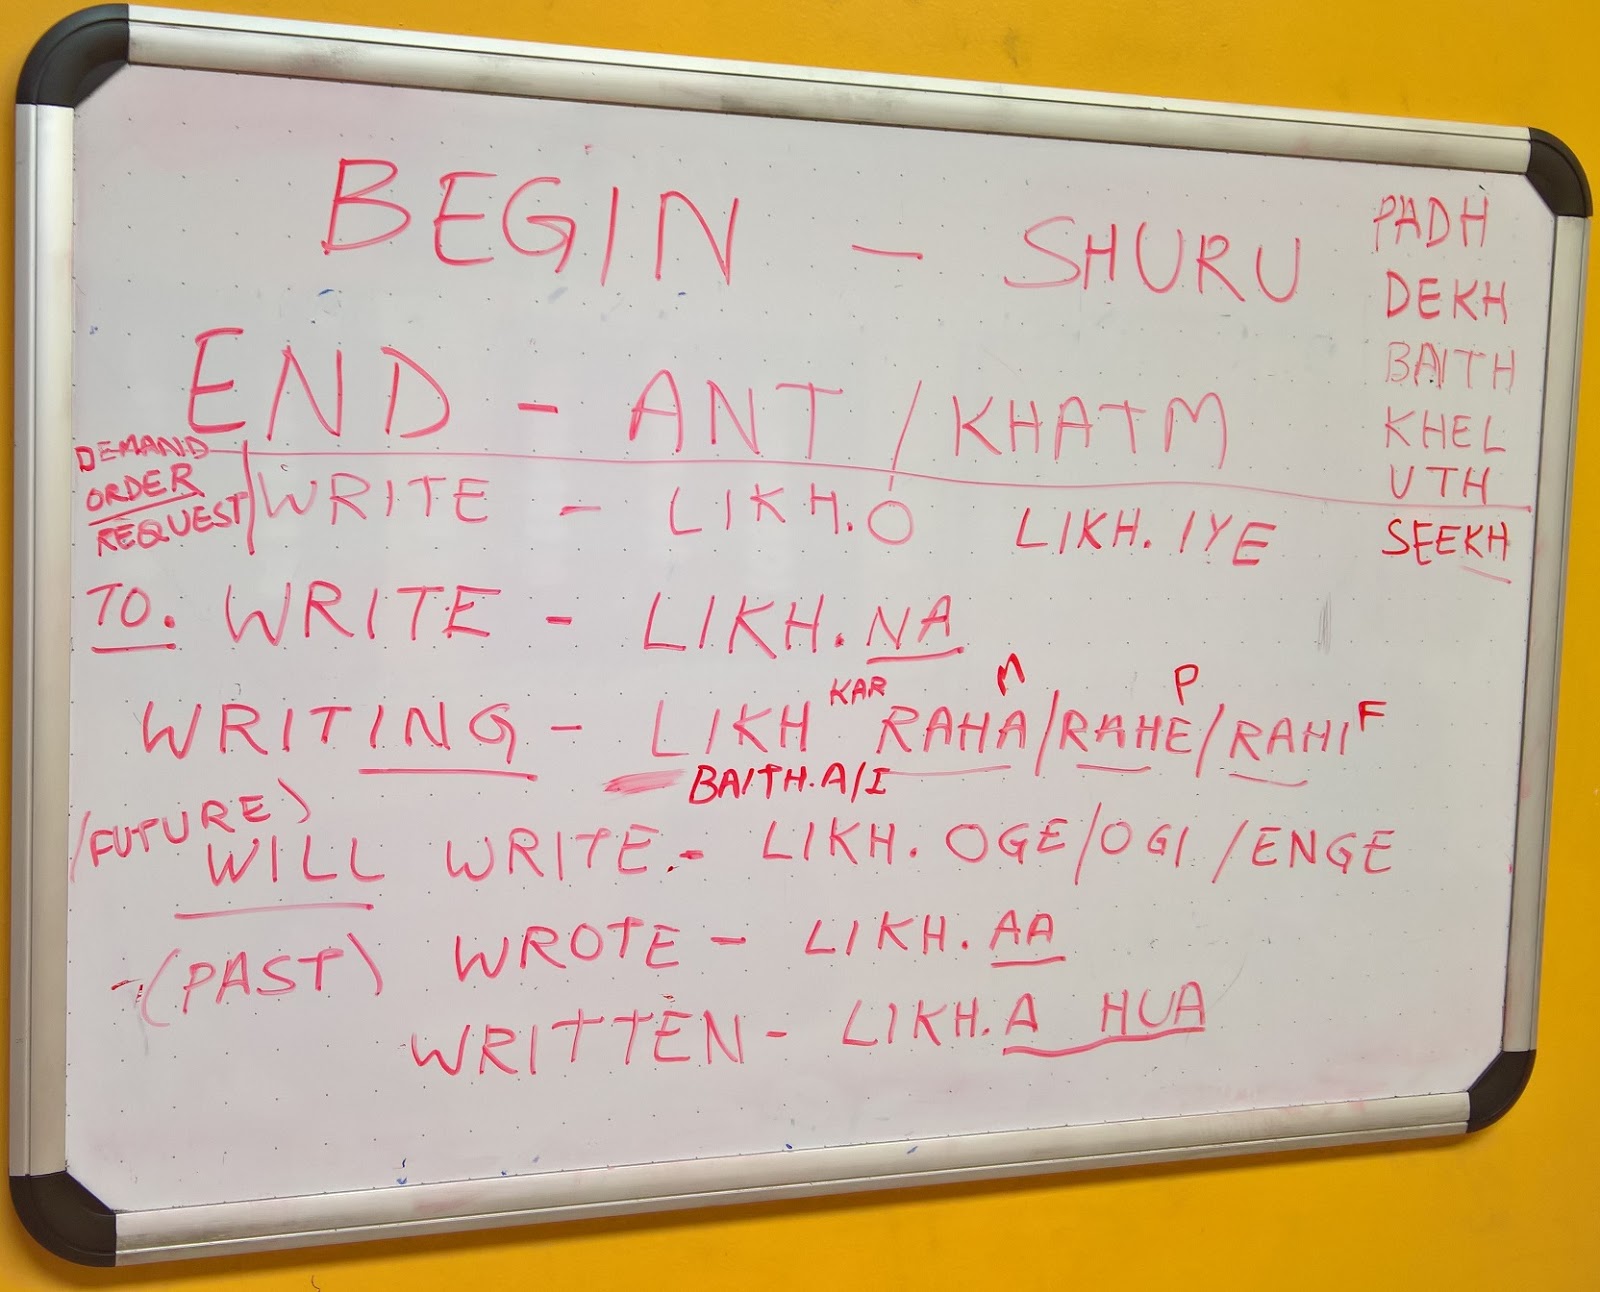 BEGIN - SHURU
END - ANT / KHATM
PADH
DEKH
BAITH
KHEL
UTH
SEEKH
DEMAND
ORDER
REQUEST
WRITE - LIKH.O LIKH.IYE
TO. WRITE - LIKH.NA
WRITING - LIKH KAR RAHA/RAHE/RAHI
M P F
BAITH.A/I
(FUTURE)
WILL WRITE - LIKH. OGE/OGI/ENGE
-(PAST) WROTE - LIKH.AA
WRITTEN - LIKH.A HUA